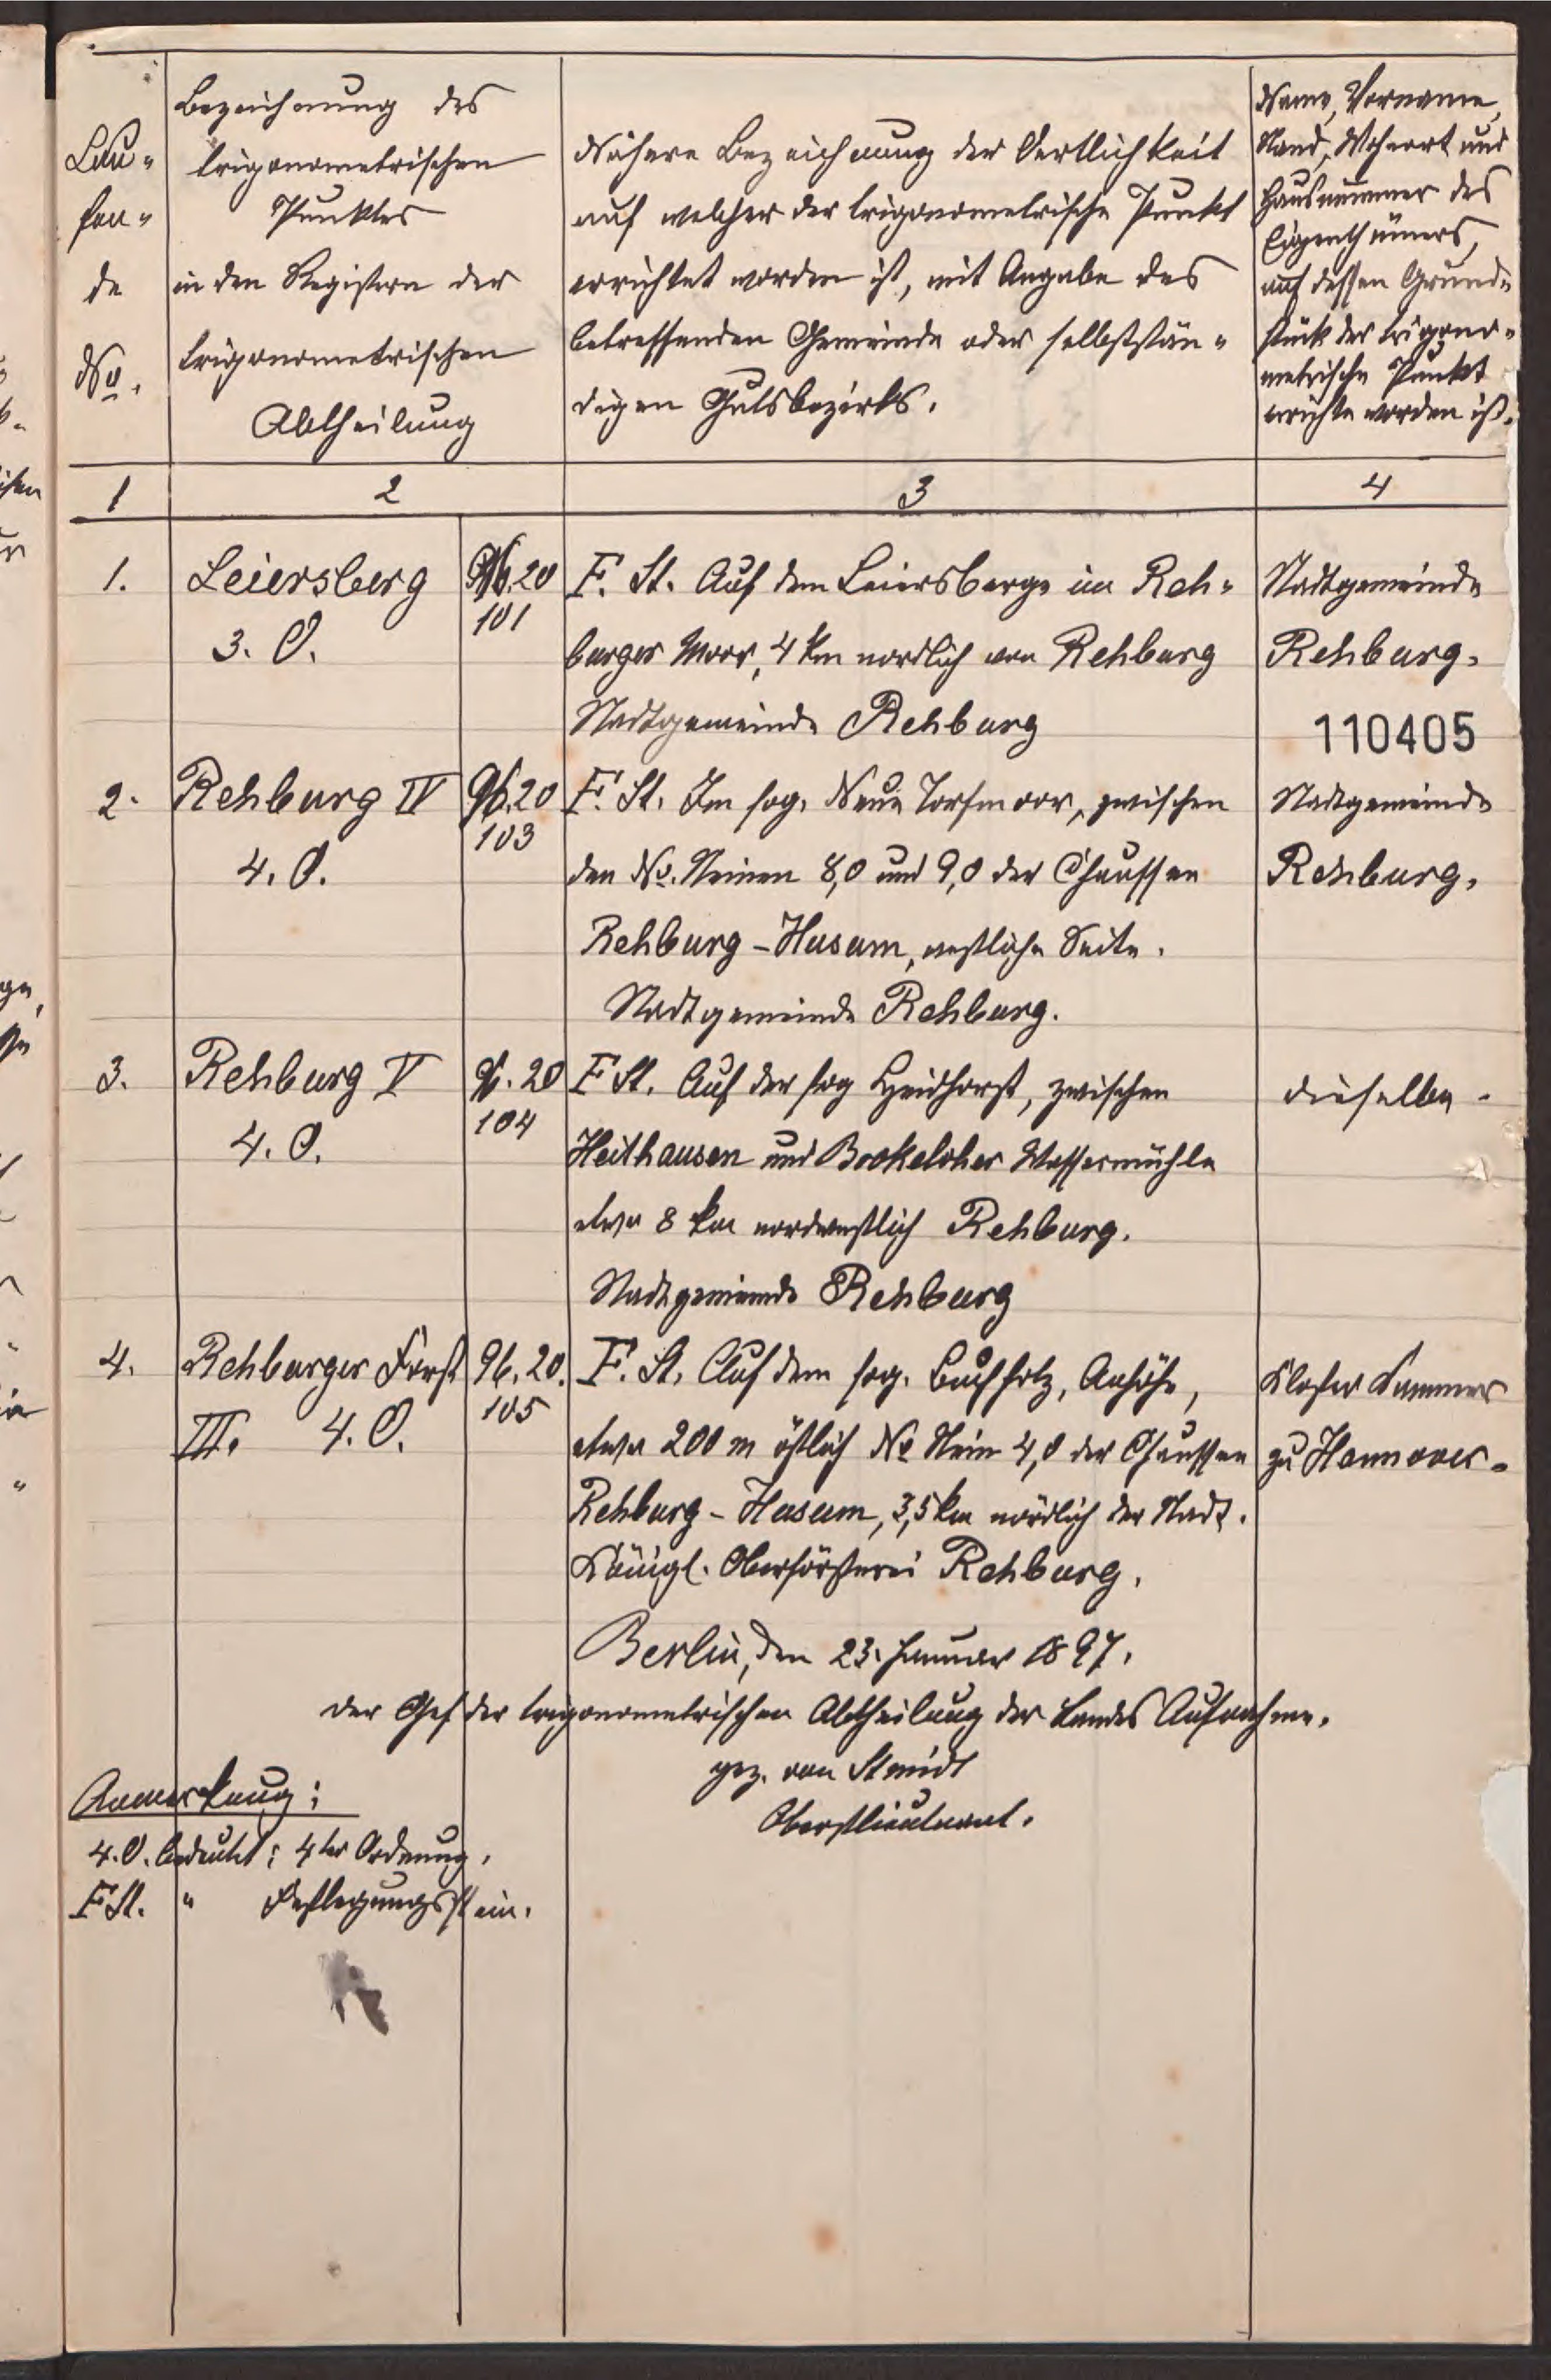 Lau-
fen-
de
No.
Bezeichnung des
trigonometrischen
Punktes
in den Registern der
trigonometrischen
Abtheilung
Nähere Bezeichnung der Oertlichkeit
auf welcher der trigonometrische Punkt
errichtet worden ist, mit Angabe des
betreffenden Gemeinde oder selbststän-
digen Gutsbezirks.
Name, Vorname,
Stand, Wohnort und
Hausnummer des
Eigenthümers,
auf dessen Grund-
stück der trigono-
metrische Punkt
errichte worden ist.
1 2 3 4
1. Leiersberg 96.20 F. St. Auf dem Leiersberge im Reh- Stadtgemeinde
3. O. 101 burger Moor, 4 km nordlich von Rehburg Rehburg.
Stadtgemeinde Rehburg
110405
2. Rehburg IV 96.20 F. St. Im sog. Neue Torfmoor, zwischen Stadtgemeinde
4. O. 103 den No. Steinen 8,0 und 9,0 der Chaussee Rehburg.
Rehburg-Husum, westliche Seite.
Stadtgemeinde Rehburg.
3. Rehburg V 96.20 F St. Auf der sog Heidhorst, zwischen dieselbe.
4. O. 104 Heithausen und Brokeloher Wassermühle
etwa 8 km nordwestlich Rehburg.
Stadtgemeinde Rehburg
4. Rehburger Forst 96.20. F. St. Auf dem sog. Buchholz, Anhöhe, Kloster Kammer
III. 4. O. 105 etwa 200 m östlich No Stein 4,0 der Chaussee zu Hannover.
Rehburg-Husum, 3,5 km nördlich der Stadt.
Königl. Oberförsterei Rehburg.
Berlin, den 23. Januar 1897.
Der Chef der trigonometrischen Abtheilung der Landes Aufnahme.
gez. von Schmidt
Oberstlieutnant.
Anmerkung:
4. O. bedeutet: 4ter Ordnung.
F St. " Festlegungsstein.